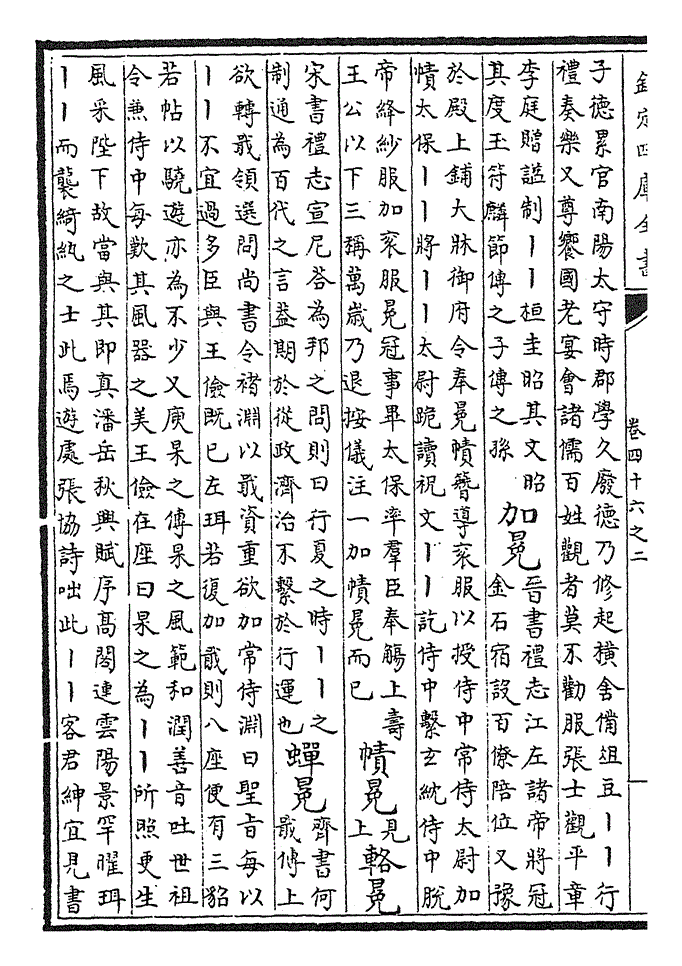 欽定四庫全書
卷四十六之二
子德累官南陽太守時郡學久廢德乃修起橫舍備俎豆丨丨行
禮奏樂又尊饗國老宴會諸儒百姓觀者莫不勸服張士觀平章
李庭贈謚制丨丨桓圭昭其文昭
其度玉符麟節傳之子傳之孫
加冕
晉書禮志江左諸帝將冠
金石宿設百僚陪位又豫
於殿上鋪大牀御府令奉冕幘簪導衮服以授侍中常侍太尉加
幘太保丨丨將丨丨太尉跪讀祝文丨丨訖侍中繫玄紞侍中脫
帝絳紗服加衮服冕冠事畢太保率羣臣奉觴上壽
王公以下三稱萬歲乃退按儀注一加幘冕而已
幘冕
見
上
輅冕
宋書禮志宣尼答為邦之問則曰行夏之時丨丨之
制通為百代之言蓋期於從政濟治不繫於行運也
蟬冕
齊書何
戢傳上
欲轉戢領選問尚書令褚淵以戢資重欲加常侍淵曰聖旨每以
丨丨不宜過多臣與王儉既已左珥若復加戢則八座便有三貂
若帖以驍遊亦為不少又庾杲之傳杲之風範和潤善音吐世祖
令兼侍中每歎其風器之美王儉在座曰杲之為丨丨所照更生
風采陛下故當與其即真潘岳秋興賦序高閣連雲陽景罕曜珥
丨丨而襲綺紈之士此焉遊處張協詩咄此丨丨客君紳宜見書